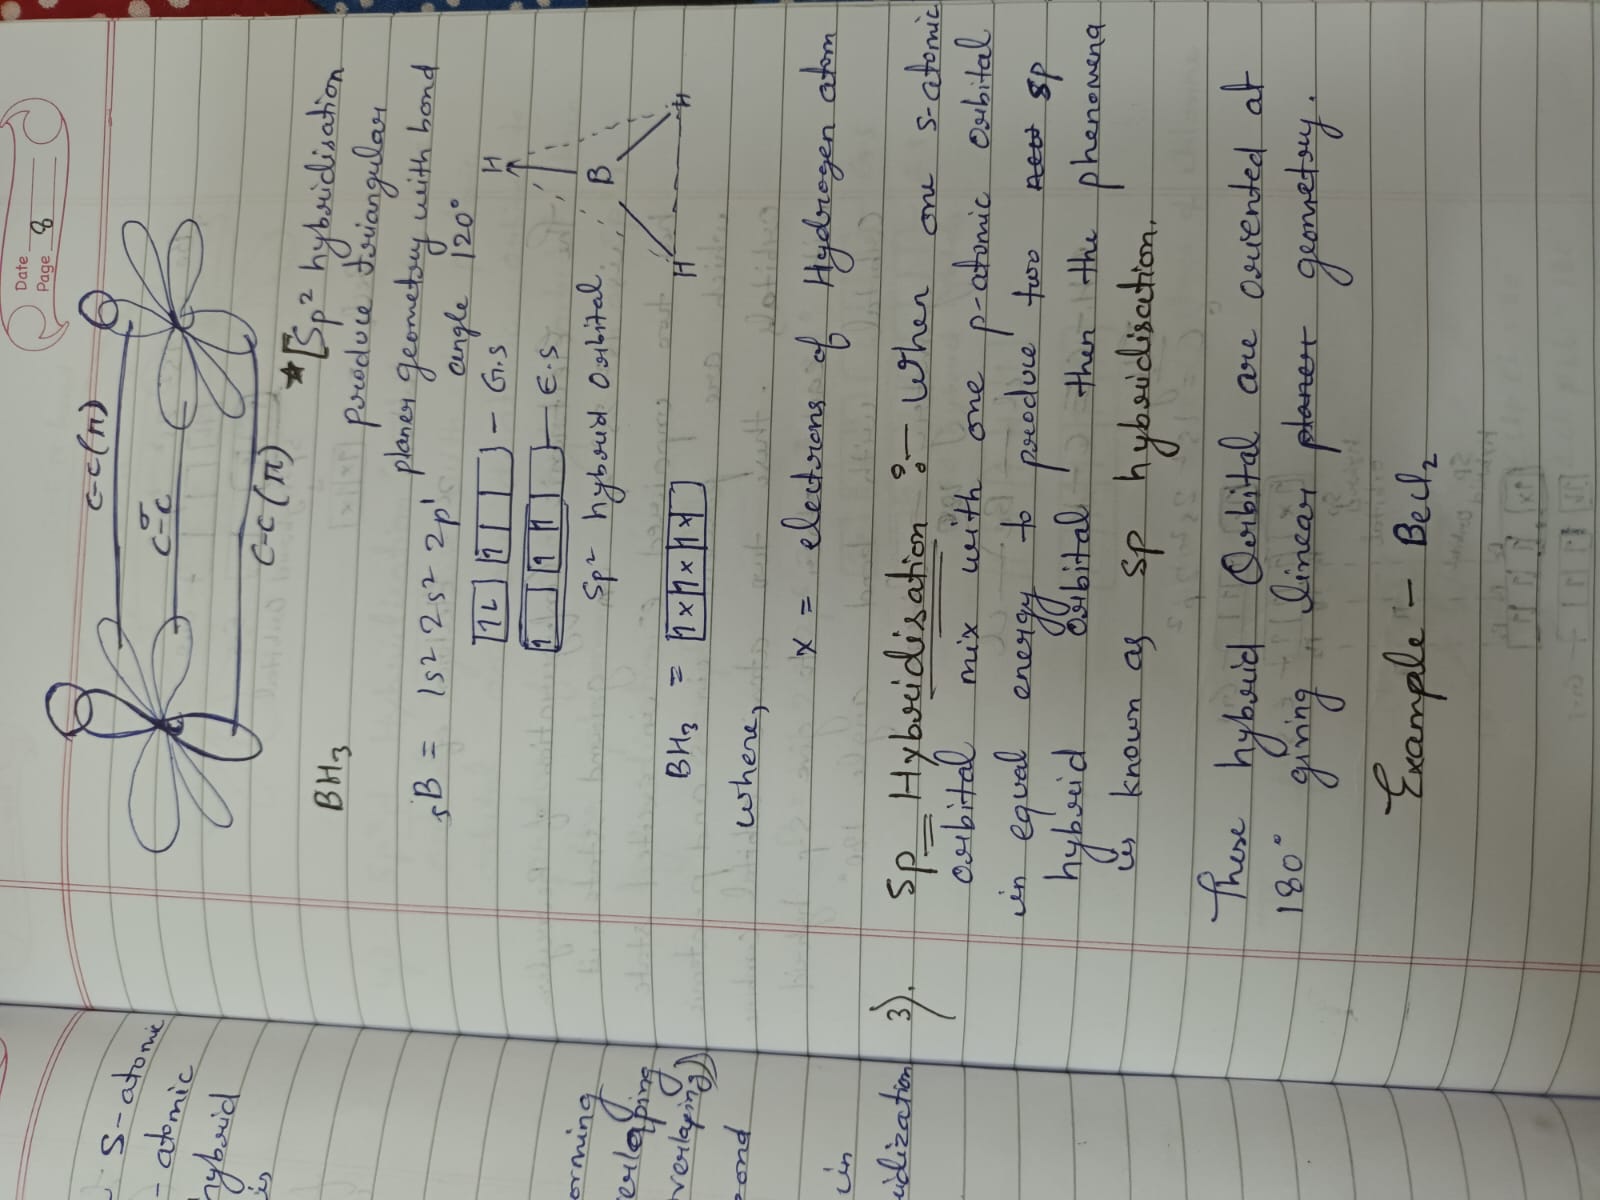 Date
Page 8
S-atomic
- atomic
hybrid
is
orming
erlaping
verlaping))
bond
in
idization
C-C(π)
σ
C-C
C-C(π)
★[Sp² hybridisation
produce triangular
planer geometry with bond
angle 120°
BH₃
₅B = 1s² 2s² 2p¹
1L 1 - G.S
1 1 1 - E.S
Sp² hybrid Orbital
H
B
H H
BH₃ = 1x 1x 1x
where,
x = electrons of Hydrogen atom
3). Sp Hybridisation :- When one s-atomic
orbital mix with one p-atomic orbital
in equal energy to produce two new sp
hybrid orbital then the phenomena
is known as sp hybridisation.
These hybrid Orbital are oriented at
180° giving linear planer geometry.
Example - Becl₂